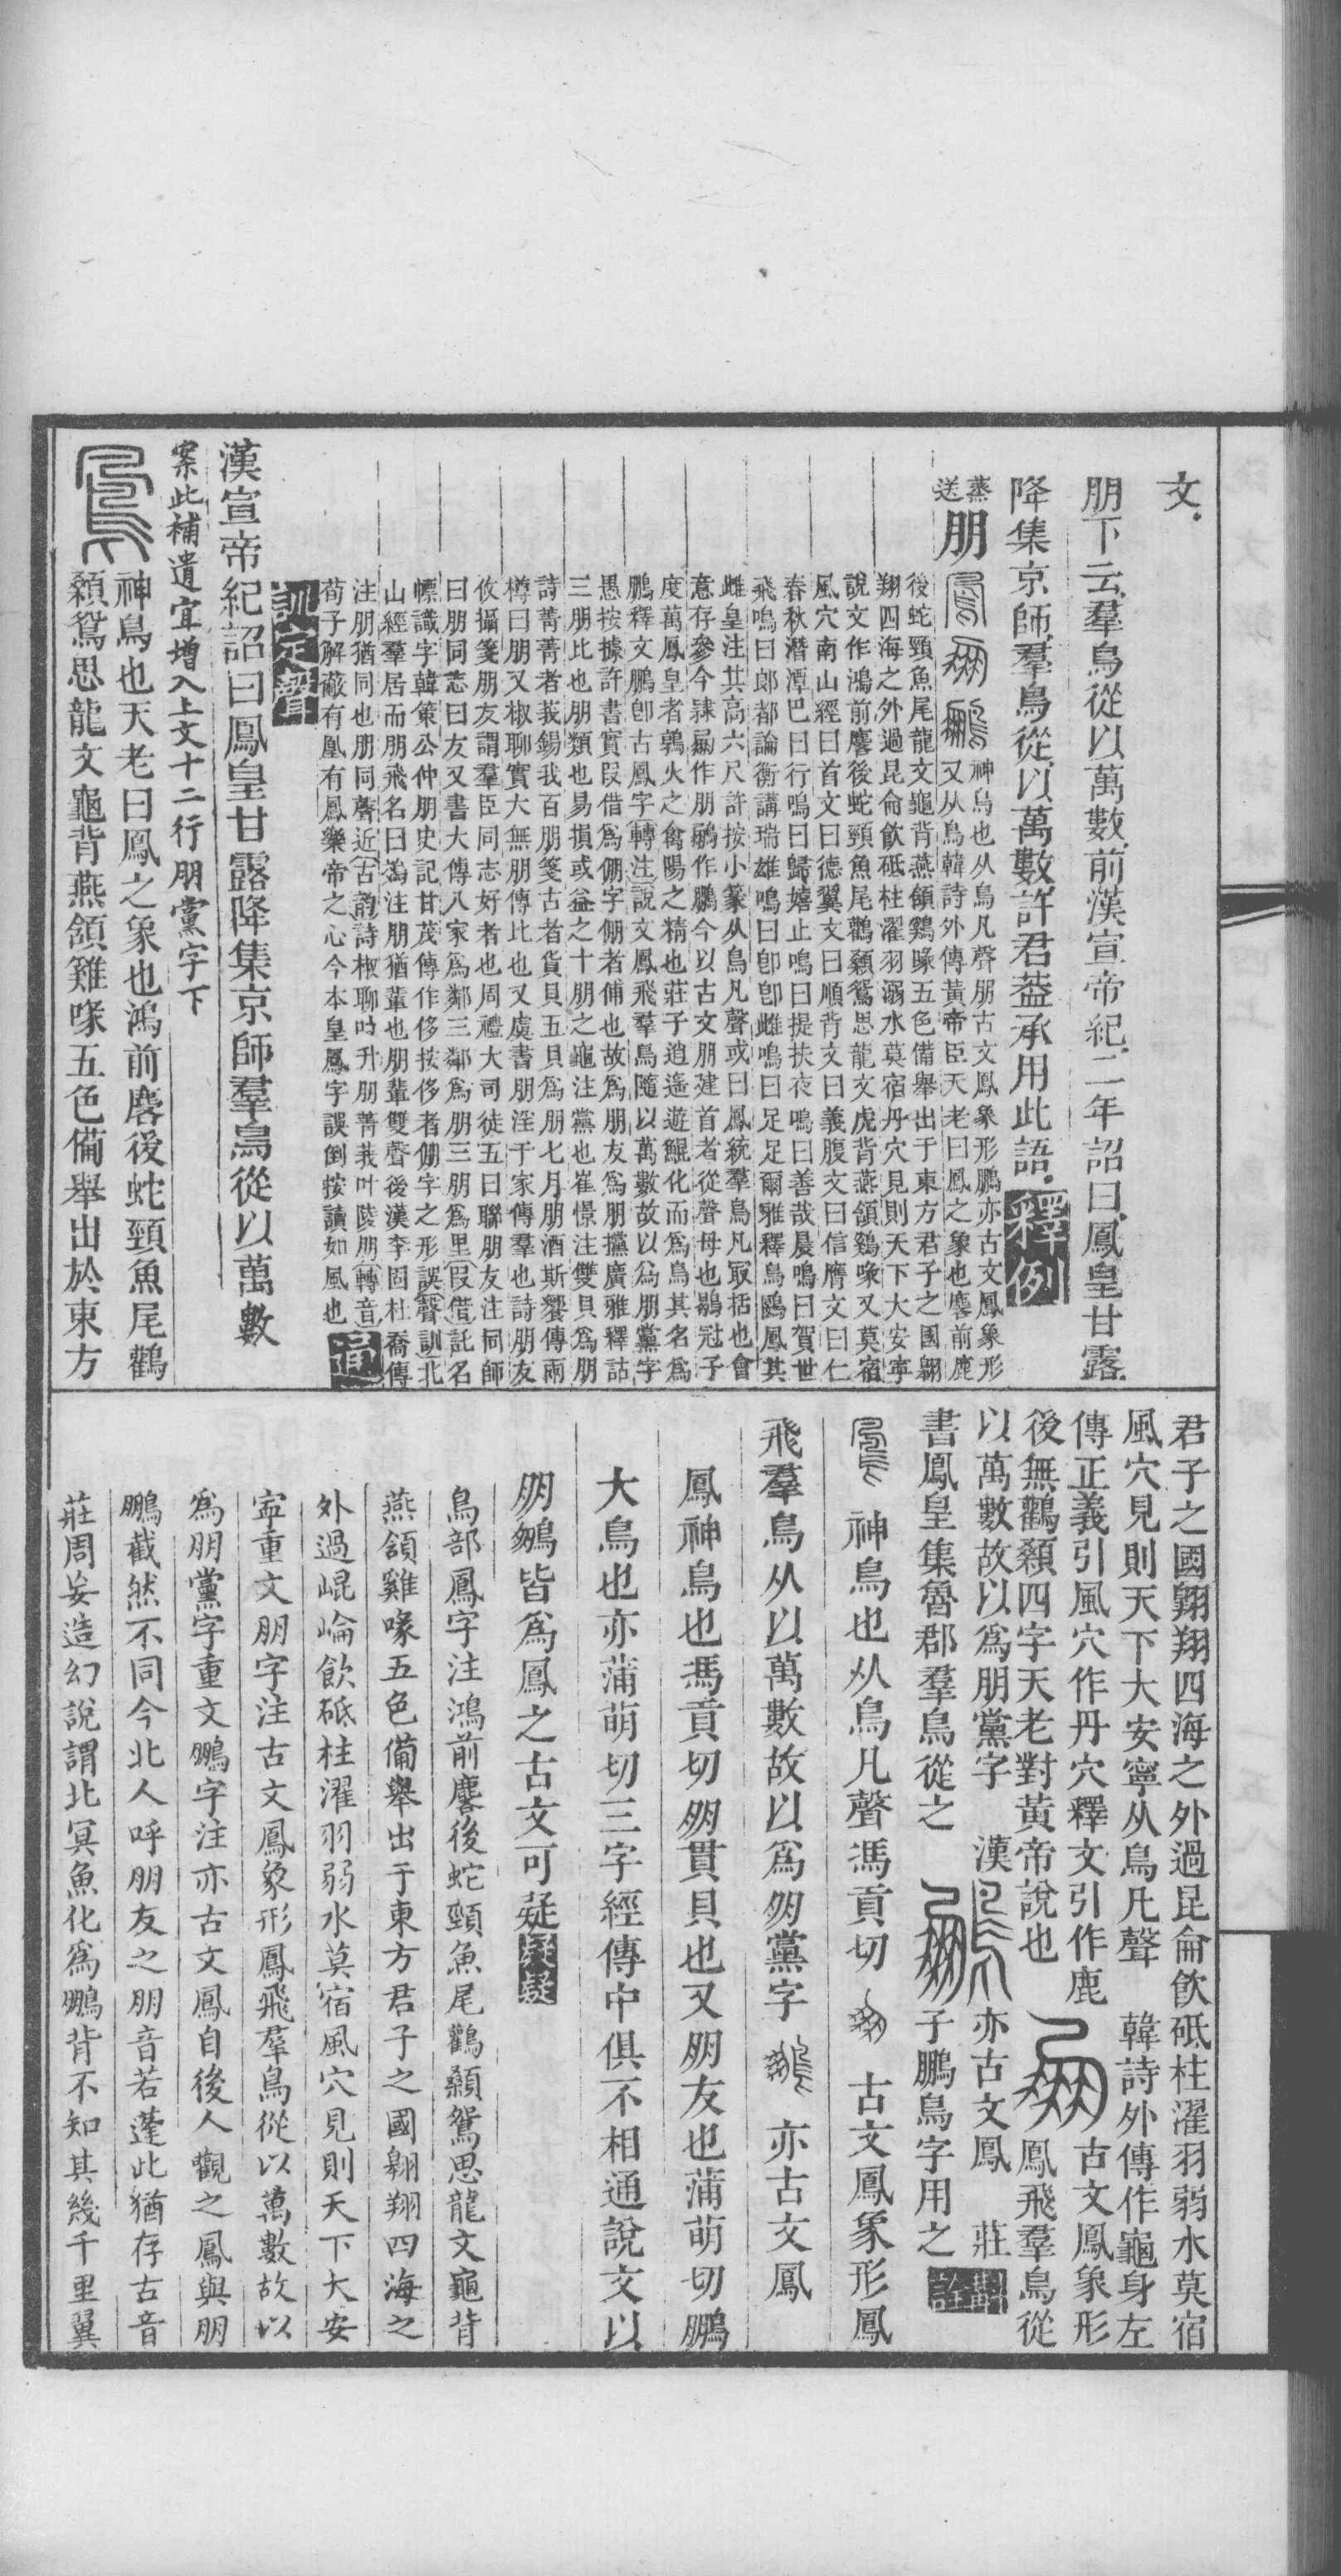 文.
朋下云.羣鳥從以萬數.前漢宣帝紀.二年詔曰.鳳皇甘露.
降集京師.羣鳥從以萬數.許君葢承用此語.釋例
蒸送
朋
神鳥也从鳥凡聲朋古文鳳象形鵬亦古文鳳象形
又从鳥韓詩外傳黃帝臣天老曰鳳之象也麐前鹿
後蛇頸魚尾龍文龜背燕頷鷄喙五色備舉出于東方君子之國翺
翔四海之外過昆侖飮砥柱濯羽溺水莫宿丹穴見則天下大安寧
說文作鴻前麐後蛇頸魚尾鸛顙鴛思龍文虎背燕頷鷄喙又莫宿
風穴南山經曰首文曰德翼文曰順背文曰義腹文曰信膺文曰仁
春秋潛潭巴曰行鳴曰歸嬉止鳴曰提扶夜鳴曰善哉晨鳴曰賀世
飛鳴曰郎都論衡講瑞雄鳴曰卽卽雌鳴曰足足爾雅釋鳥鶠鳳其
雌皇注其高六尺許按小篆从鳥凡聲或曰鳳統羣鳥凡冣括也會
意存參今隷朋作朋鵬作鵬今以古文朋建首者從聲母也鶡冠子
度萬鳳皇者鶉火之禽陽之精也莊子逍遙遊鯤化而爲鳥其名爲
鵬釋文鵬卽古鳳字轉注說文鳳飛羣鳥隨以萬數故以爲朋黨字
愚按據許書實叚借爲倗字倗者俌也故爲朋友爲朋攩廣雅釋詁
三朋比也朋類也易損或益之十朋之龜注黨也崔憬注雙貝爲朋
詩菁菁者莪錫我百朋箋古者貨貝五貝爲朋七月朋酒斯饗傳兩
樽曰朋又椒聊實大無朋傳比也又虞書朋淫于家傳羣也詩朋友
攸攝箋朋友謂羣臣同志好者也周禮大司徒五曰聯朋友注同師
曰朋同志曰友又書大傳八家爲鄰三鄰爲朋三朋爲里叚借託名
幖識字韓策公仲朋史記甘茂傳作侈按侈者倗字之形誤聲訓北
山經羣居而朋飛名曰鴢注朋猶輩也朋輩雙聲後漢李固杜喬傳
注朋猶同也朋同聲近古韵詩椒聊叶升朋菁莪叶陵朋轉音
荀子解蔽有凰有鳳樂帝之心今本皇鳳字誤倒按讀如風也通
訓定聲
漢宣帝紀詔曰鳳皇甘露降集京師羣鳥從以萬數
案此補遺宜增入上文十二行朋黨字下
神鳥也天老曰鳳之象也鴻前麐後蛇頸魚尾鸛
顙鴛思龍文龜背燕頷雞喙五色備舉出於東方
君子之國翺翔四海之外過昆侖飮砥柱濯羽弱水莫宿
風穴見則天下大安寧从鳥凡聲 韓詩外傳作龜身左
傳正義引風穴作丹穴釋文引作鹿
後無鸛顙四字天老對黃帝說也
古文鳳象形
鳳飛羣鳥從
以萬數故以爲朋黨字 漢
書鳳皇集魯郡羣鳥從之
亦古文鳳 莊
子鵬鳥字用之
斠詮
神鳥也从鳥凡聲馮貢切 古文鳳象形鳳
飛羣鳥从以萬數故以爲朋黨字 亦古文鳳
鳳神鳥也馮貢切朋貫貝也又朋友也蒲萌切鵬
大鳥也亦蒲萌切三字經傳中俱不相通說文以
朋鵬皆爲鳳之古文可疑疑疑
鳥部鳳字注鴻前麐後蛇頸魚尾鸛顙鴛思龍文龜背
燕頷雞喙五色備舉出于東方君子之國翺翔四海之
外過崐崘飮砥柱濯羽弱水莫宿風穴見則天下大安
寍重文朋字注古文鳳象形鳳飛羣鳥從以萬數故以
爲朋黨字重文鵬字注亦古文鳳自後人觀之鳳與朋
鵬截然不同今北人呼朋友之朋音若蓬此猶存古音
莊周妄造幻說謂北冥魚化爲鵬背不知其幾千里翼